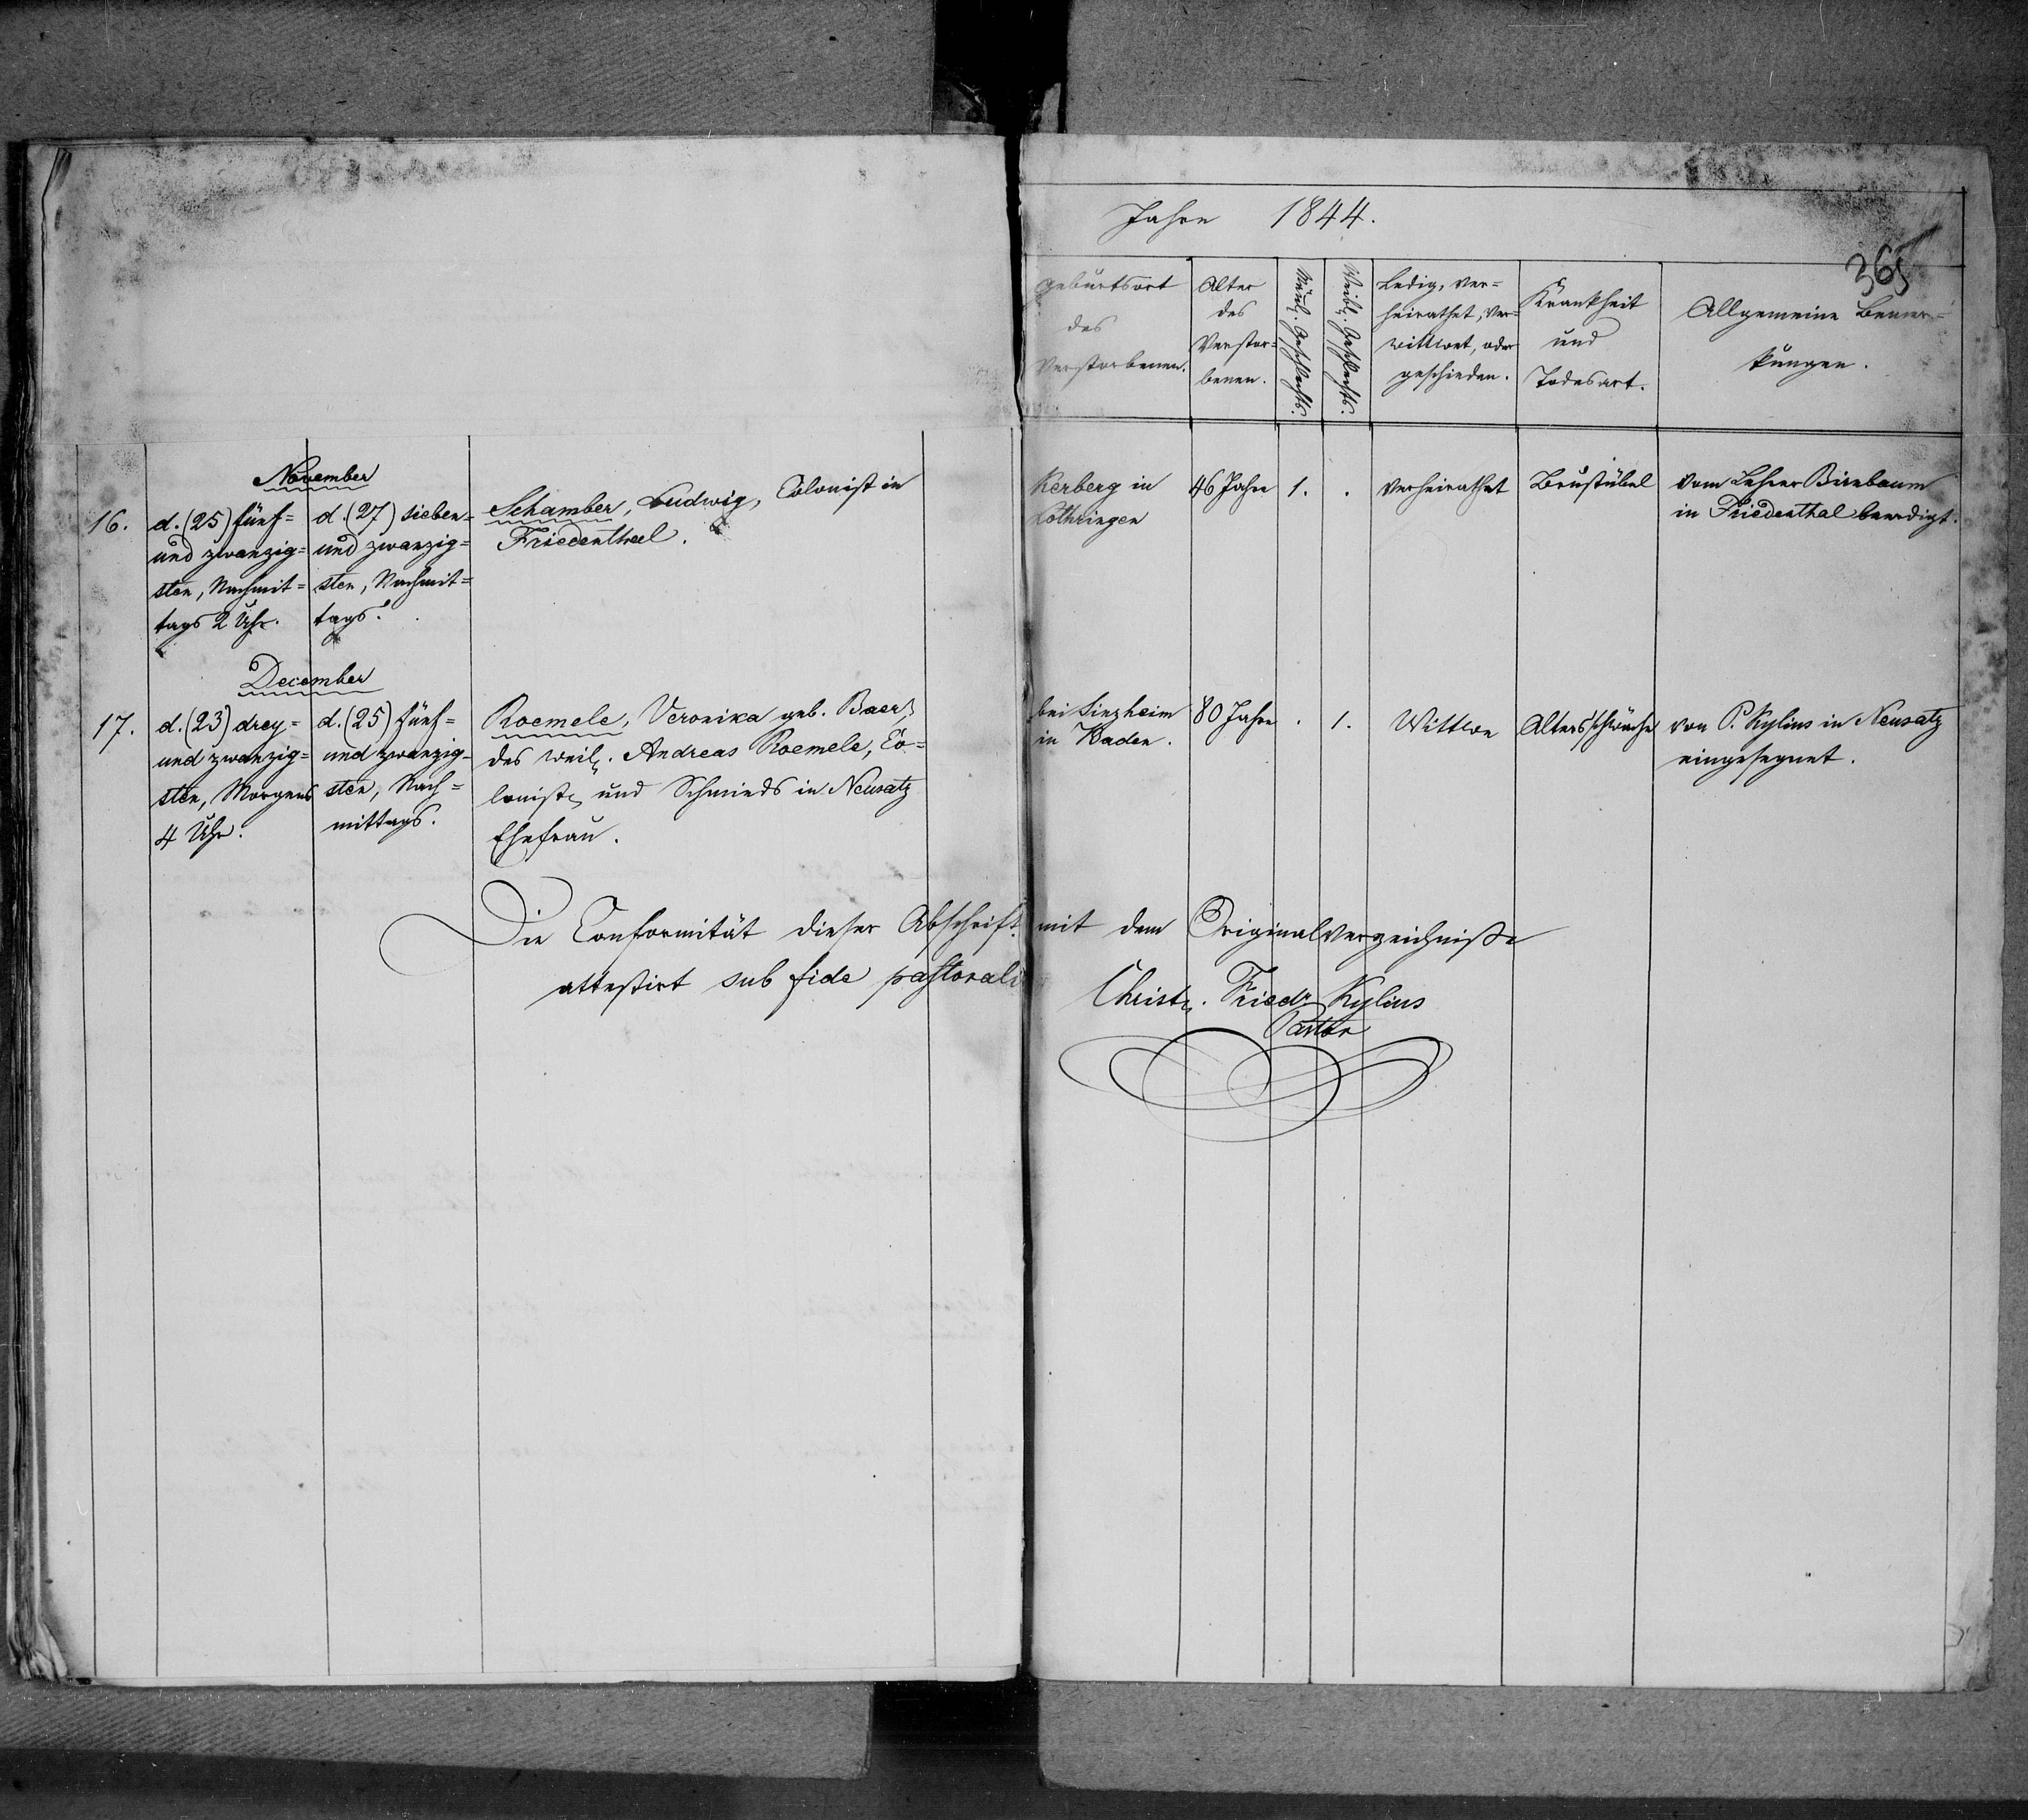 Jahre 1844.
365
Geburtsort
des
Verstorbenen.
Alter
des
Verstor=
benen.
Männl. Geschlechts.
Weibl. Geschlechts.
Ledig, ver=
heirathet, ver=
wittwet, oder
geschieden.
Krankheit
und
Todesart.
Allgemeine Bemer=
kungen.
November
16.
d. (25) fünf=
und zwanzig=
sten, Nachmit=
tags 2 Uhr.
d. (27) sieben=
und zwanzig=
sten, Nachmit=
tags.
Schamber, Ludwig, Colonist in
Friedenthal.
Kerberg in
Lothringen
46 Jahre
1.
.
Verheirathet
Brustübel
vom Lehrer Birnbaum
in Friedenthal beerdigt.
December
17.
d. (23) drey=
und zwanzig=
sten, Morgens
4 Uhr.
d. (25) fünf=
und zwanzig=
sten, Nach=
mittags.
Roemele, Veronika geb. Baer,
des weil. Andreas Roemele, Co=
lonist und Schmieds in Neusatz
Ehefrau.
bei Sinzheim
in Baden.
80 Jahre
.
1.
Wittwe
Altersschwäche
von P. Kylius in Neusatz
eingesegnet.
Die Conformität dieser Abschrift mit dem Originalverzeichnisse
attestirt sub fide pastorali Christ. Friedr Kylius
Pastor